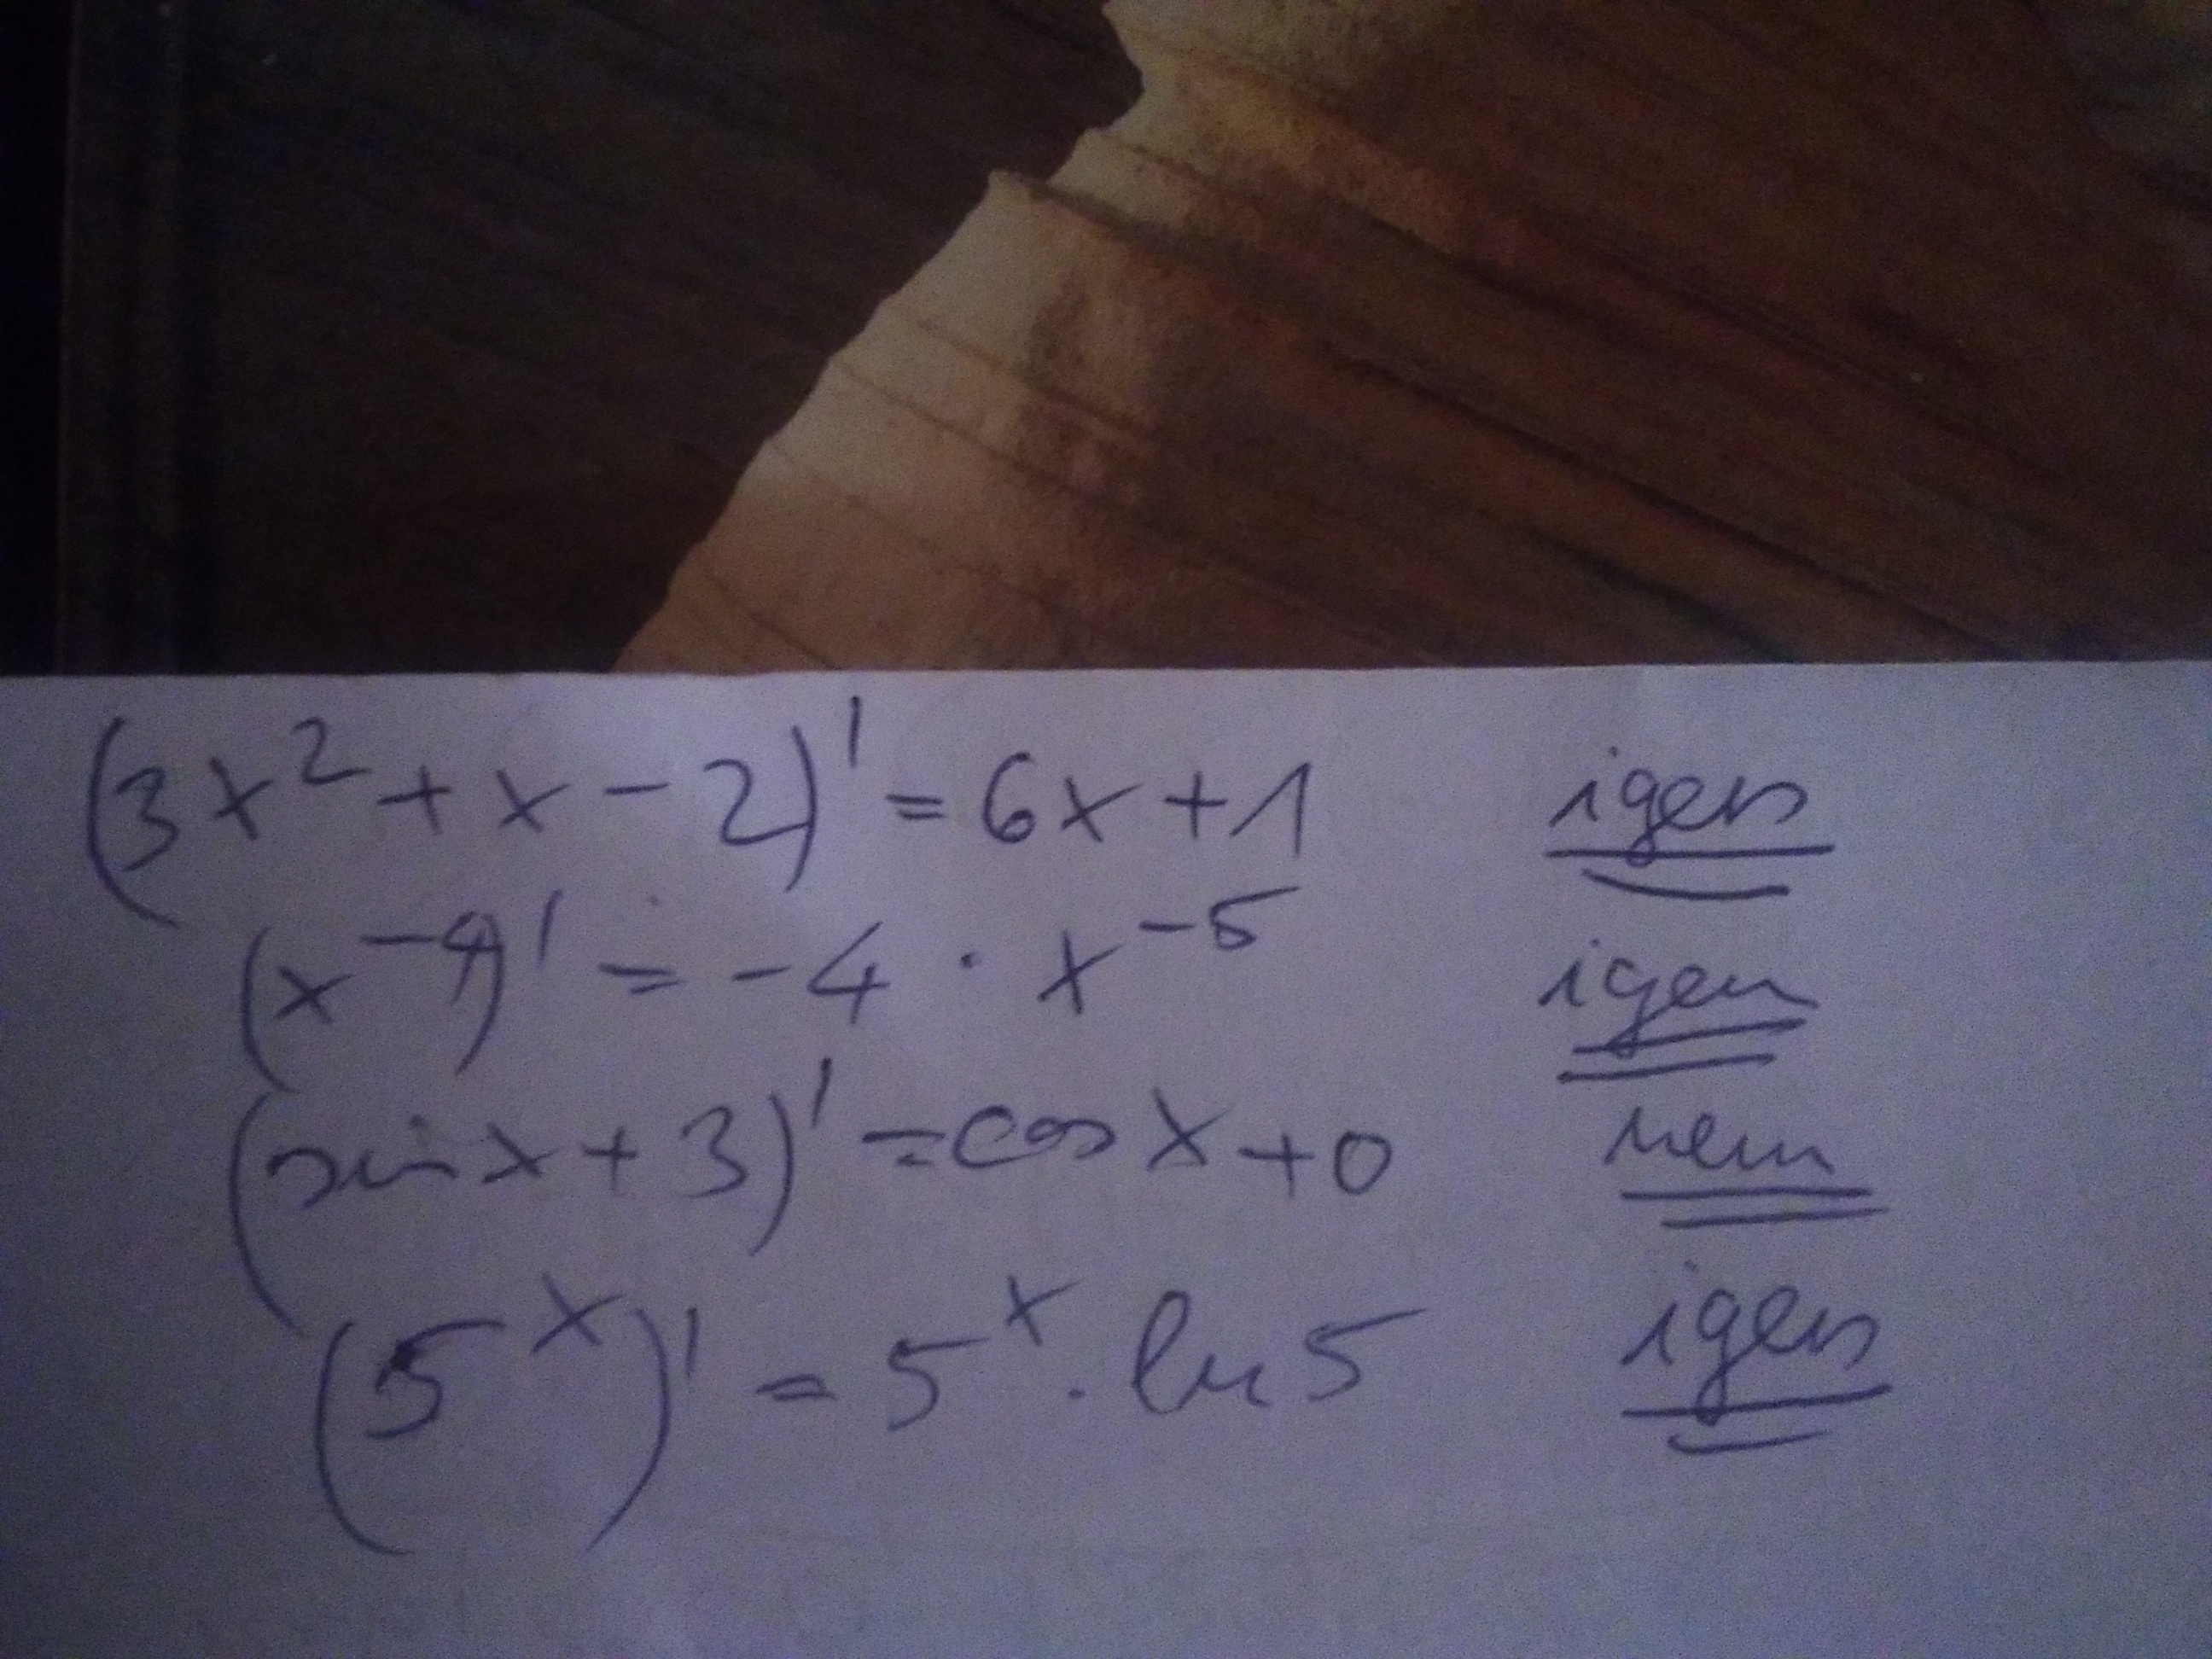 (3x² + x - 2)' = 6x + 1 igen
(x⁻⁴)' = -4 · x⁻⁵ igen
(sin x + 3)' = cos x + 0 nem
(5ˣ)' = 5ˣ · ln 5 igen